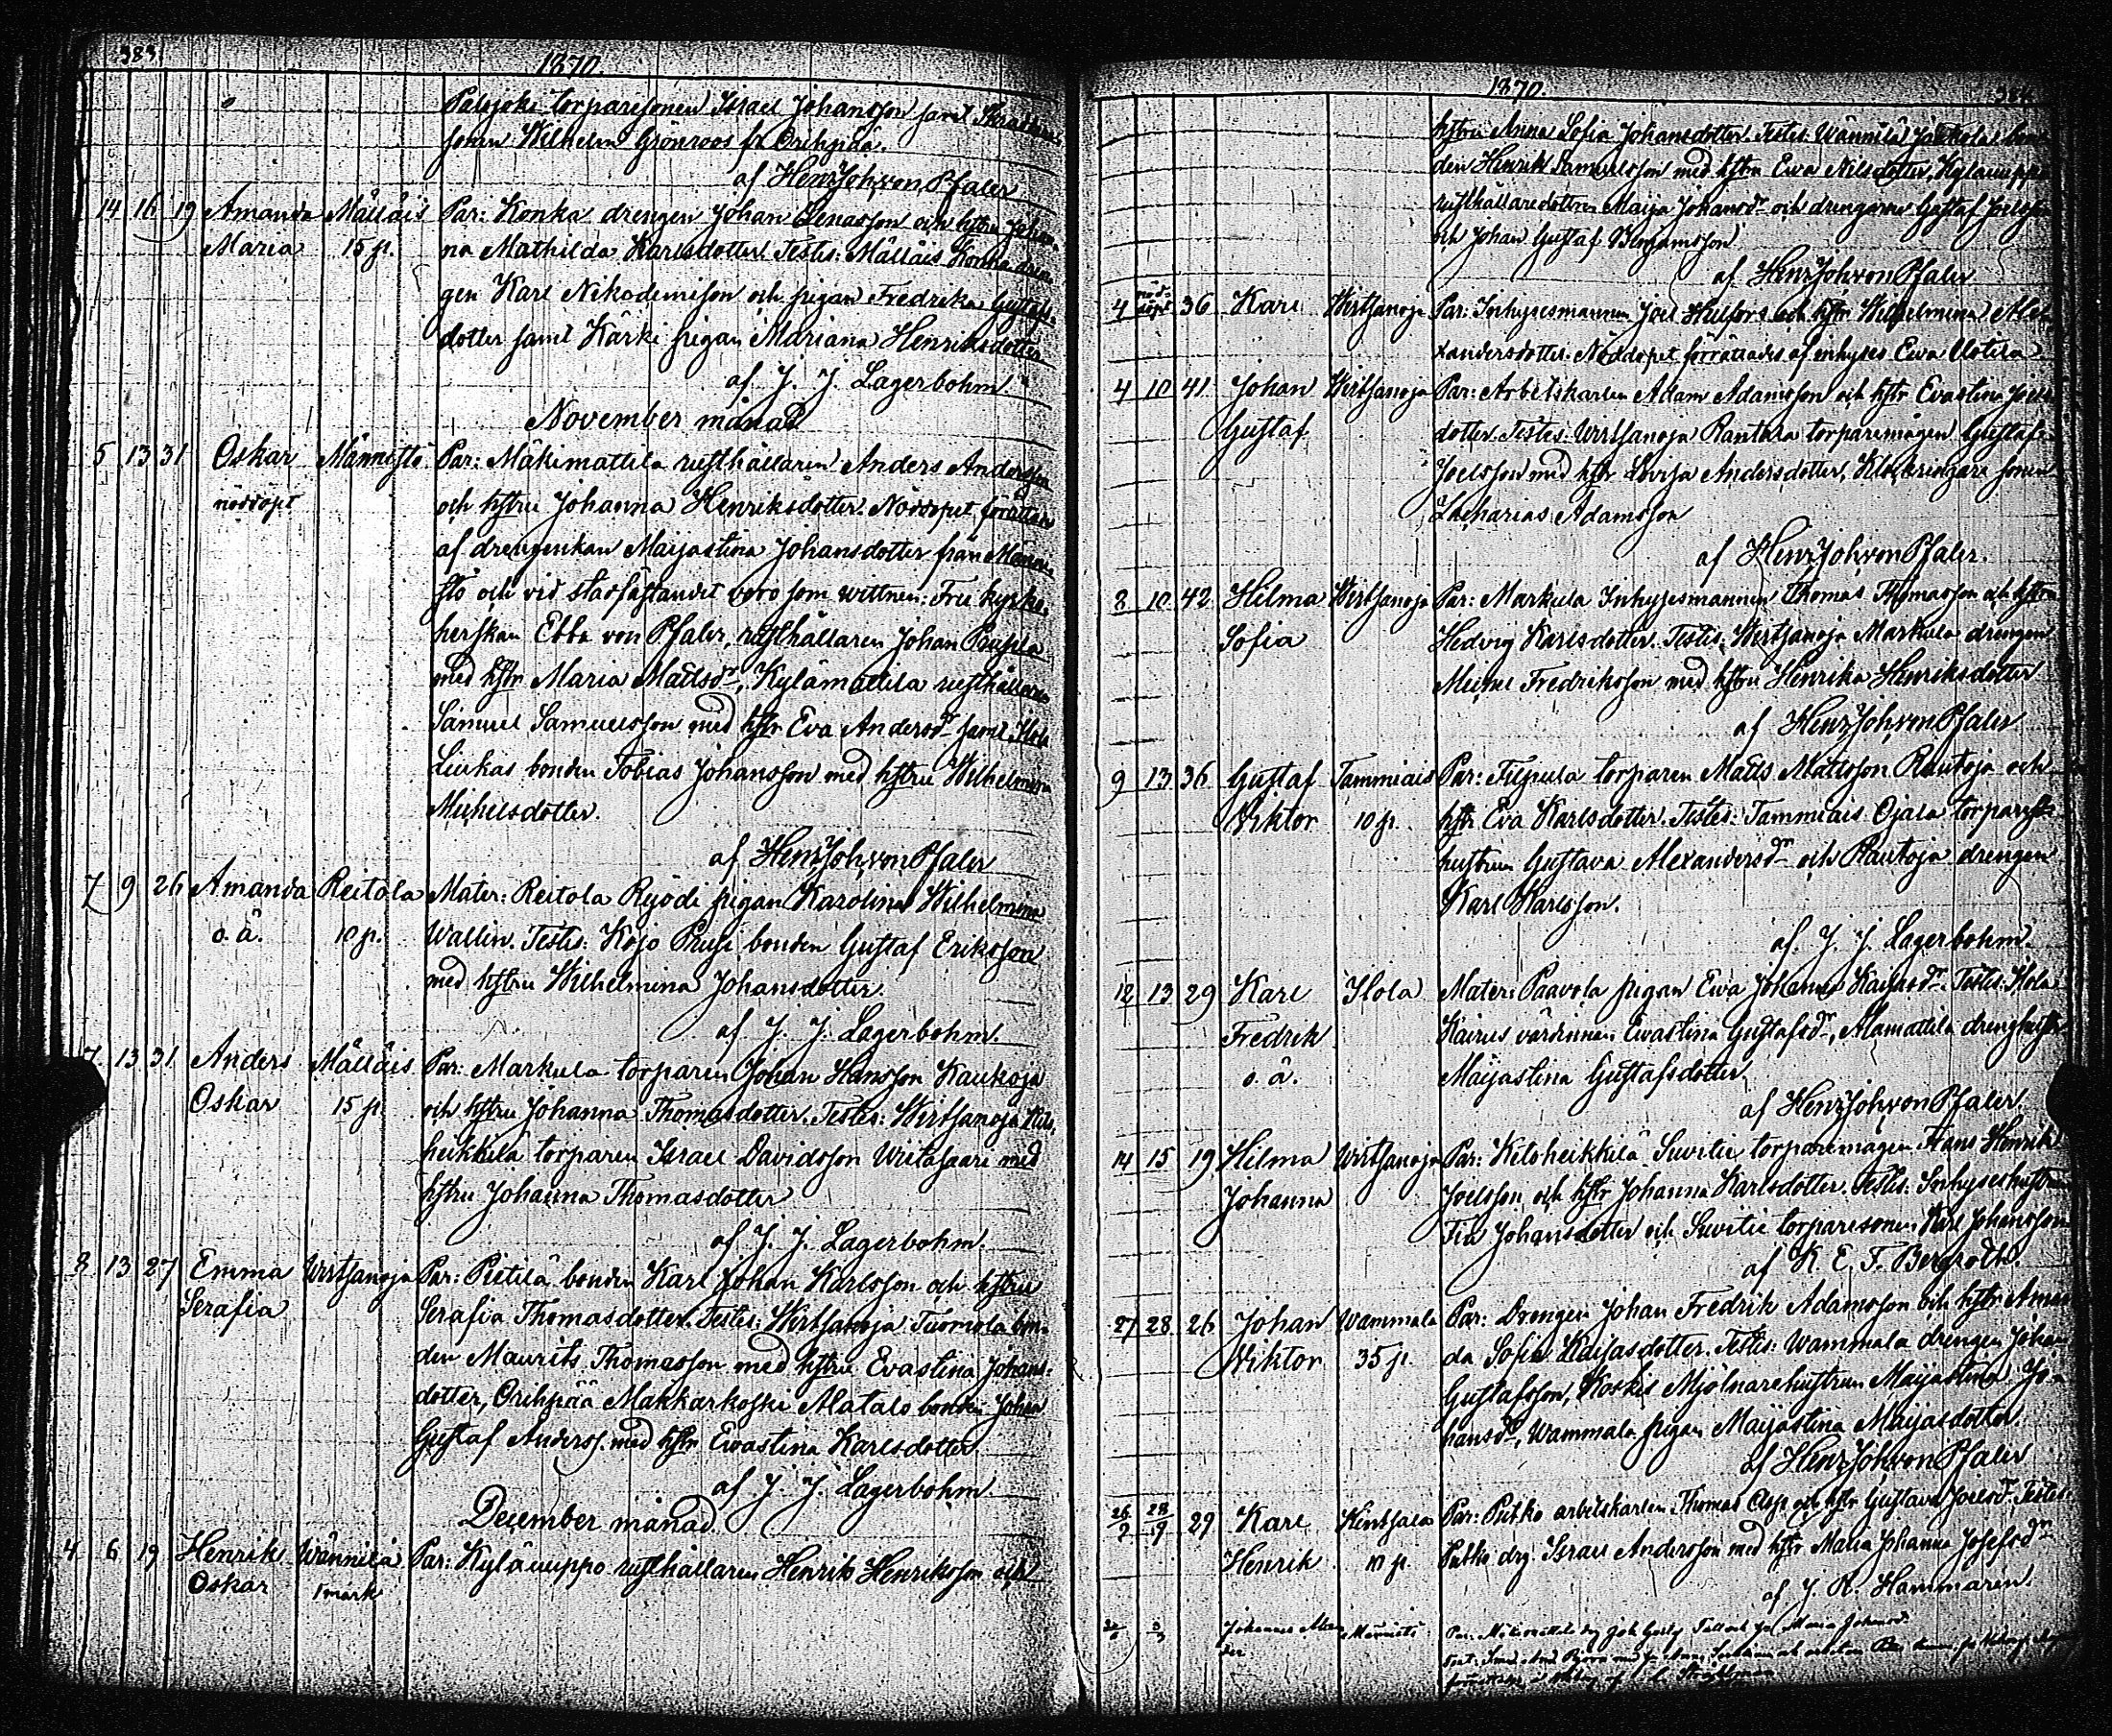 383
1870.
Palojoki torparesonen Israel Johansson samt
sonen Wilhelm Grönroos fr. Orihpää.
af Henr. Joh. von Pfaler
14 16 19 Amanda Mälläis Par: Konka drengen Johan Lenasson och hstru Johan-
Maria 15 p. na Mathilda Karlsdotter. Testes: Mälläis Konka dren-
gen Karl Nikodemisson och pigan Fredrika Gustafs-
dotter samt Kärki pigan Mariana Henriksdotter
af J. J. Lagerbohm.
November månad
5 13 31 Oskar Männistö Par: Mäkimattila rusthållaren Anders Andersson
nöddöpt och hstru Johanna Henriksdotter. Nöddopet förättades
af drengenkan Maijastina Johansdotter från Männi-
stö och vid stadfästandet voro som vittnen: Fru kyrko-
herskan Ebba von Pfaler, rusthållaren Johan
med hstr Maria Mattsdr, Kylämattila rusthållaren
Samuel Samuelsson med hstr Eva Andersdr samt Ilola
Liukas bonden Tobias Johansson med hstru Wilhelmina
Michelsdotter.
af Henr. Joh. von Pfaler
7 9 26 Amanda Reitola Mater: Reitola Ryödi pigan Karolina Wilhelmina
o. ä. 10 p. Wallin. Testes: Kojo Prusi bonden Gustaf Eriksson
med hstru Wilhelmina Johansdotter.
af J. J. Lagerbohm.
7 13 31 Anders Mälläis Par: Markula torparen Johan Hansson Kaukoja
Oskar 15 p. och hstru Johanna Thomasdotter. Testes: Wirtsanoja
heikkilä torparen Israel Davidsson Wiitasaari med
hstru Johanna Thomasdotter
af J. J. Lagerbohm.
8 13 27 Emma Wirtsanoja Par: Pietilä bonden Karl Johan Karlsson och hstru
Serafia Serafia Thomasdotter. Testes: Wirtsanoja Tuomola bon-
den Maurits Thomasson med hstru Evastina Johans-
dotter, Orihpää Makkarkoski Alatalo bonden Johan
Gustaf Anderss. med hstr Ewastina Karlsdotter.
af J. J. Lagerbohm
December månad.
4 6 19 Henrik Wännilä Par: Kyläuuppo rusthållaren Henrik Henriksson och
Oskar 1 mark
1870.
384
hstru Anna Sofia Johansdotter. Testes: Wännilä Jaakkola bon-
den Henrik Samuelsson med hstru Ewa Nilsdotter, Kyläuuppo
rusthållaredottren Maija Johansdr och drengarne Gustaf Joelsson
och Johan Gustaf Benjamsson
af Henr. Joh. von Pfaler
4 nöd-döpt 36 Karl Wirtsanoja Par: Inhysesmannen Joel Helfors och hstr Wilhelmina Alex-
andersdotter. Nöddopet förrättades af inhyses Ewa Uotila
4 10 41 Johan Wirtsanoja Par: Arbetskarlen Adam Adamsson och hstr Evastina Joels-
Gustaf dotter. Testes: Wirtsanoja Rantala torparemågen Gustaf
Joelsson med hstr Lovisa Andersdotter, Klockringare sonen
Zacharias Adamsson
af Henr. Joh. von Pfaler.
8 10 42 Hilma Wirtsanoja Par: Markula Inhysesmannen Thomas Thomasson och hstru
Sofia Hedvig Karlsdotter. Testes: Wirtsanoja Markula drengen
Michel Fredriksson med hstru Henrika Henriksdotter
af Henr. Joh. von Pfaler
9 13 36 Gustaf Tammiais Par: Filpula torparen Matts Mattsson Rautoja och
Viktor 10 p. hstr Eva Karlsdotter. Testes: Tammiais Ojala torpare-
hustrun Gustava Alexandersdr och Rautoja drengen
Karl Karlsson.
af. J. J. Lagerbohm.
12 13 29 Karl Ilola Mater: Paavola pigan Ewa Johanna Kaijasdr. Testes: Ilola
Fredrik Kairus värdinnan Ewastina Gustafsdr, Alamattila drenghustr
o. ä. Maijastina Gustafsdotter
af Henr. Joh. von Pfaler.
14 15 19 Hilma Wirtsanoja Par: Keloheikkilä Suvitie torparemågen Frans Henrik
Johanna Joelsson och hstr Johanna Karlsdotter. Testes: Inhyseshustrun
Fia Johansdotter och Suvitie torparesonen Karl Johansson
af K. E. F. Bergroth.
27 28 26 Johan Wammala Par: Drengen Johan Fredrik Adamsson och hstr Aman-
Viktor 35 p. da Sofia Kaijasdotter. Testes: Wammala drengen Johan
Gustafsson, Koskis Mjölnarehustrun Maijastina Jo-
hansdr, Wammala pigan Maijastina Maijasdotter.
af Henr. Joh. von Pfaler
26/9 28/9 29 Karl Kintsala Par: Putko arbetskarlen Thomas Asp och hstr Gustava Joelsdr. Testes:
Henrik 10 p. Putko drg Israel Andersson med hstr Maria Johanna Josefsdr
af J. R. Hammarén.
Johannes Männistö Par: Mäkimattila drg Joh. Gust. Maria Johansdr